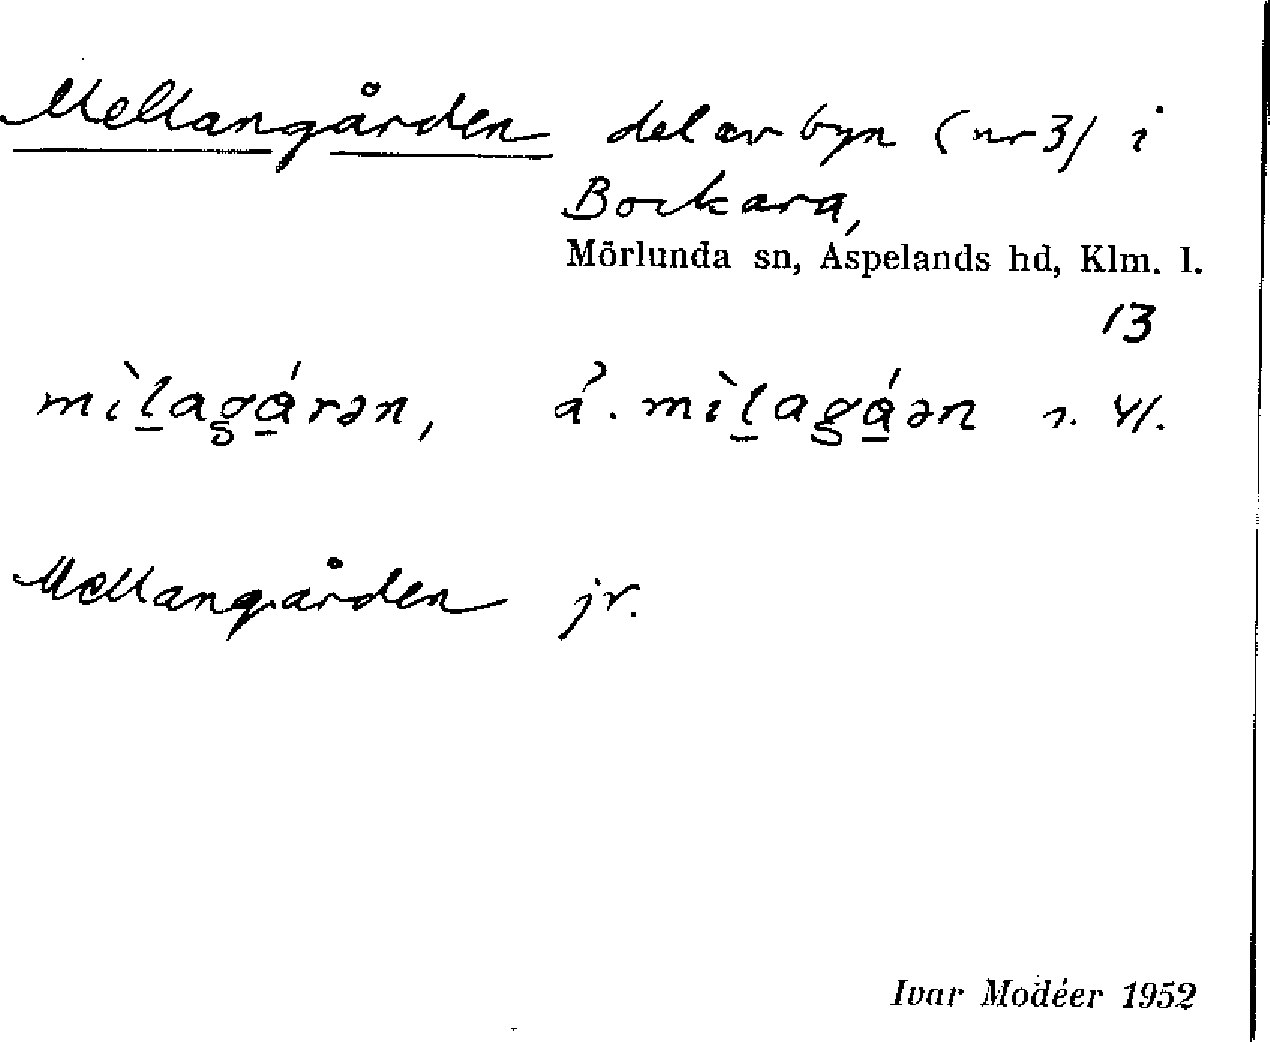 Mellangården del av byn (nr 3) i
Bockara,
Mörlunda sn, Aspelands hd, Klm. l.
13
mìl̲agá̲rən, mìl̲agá̲ən
Mellangården jr.
Ivar Modéer 1952